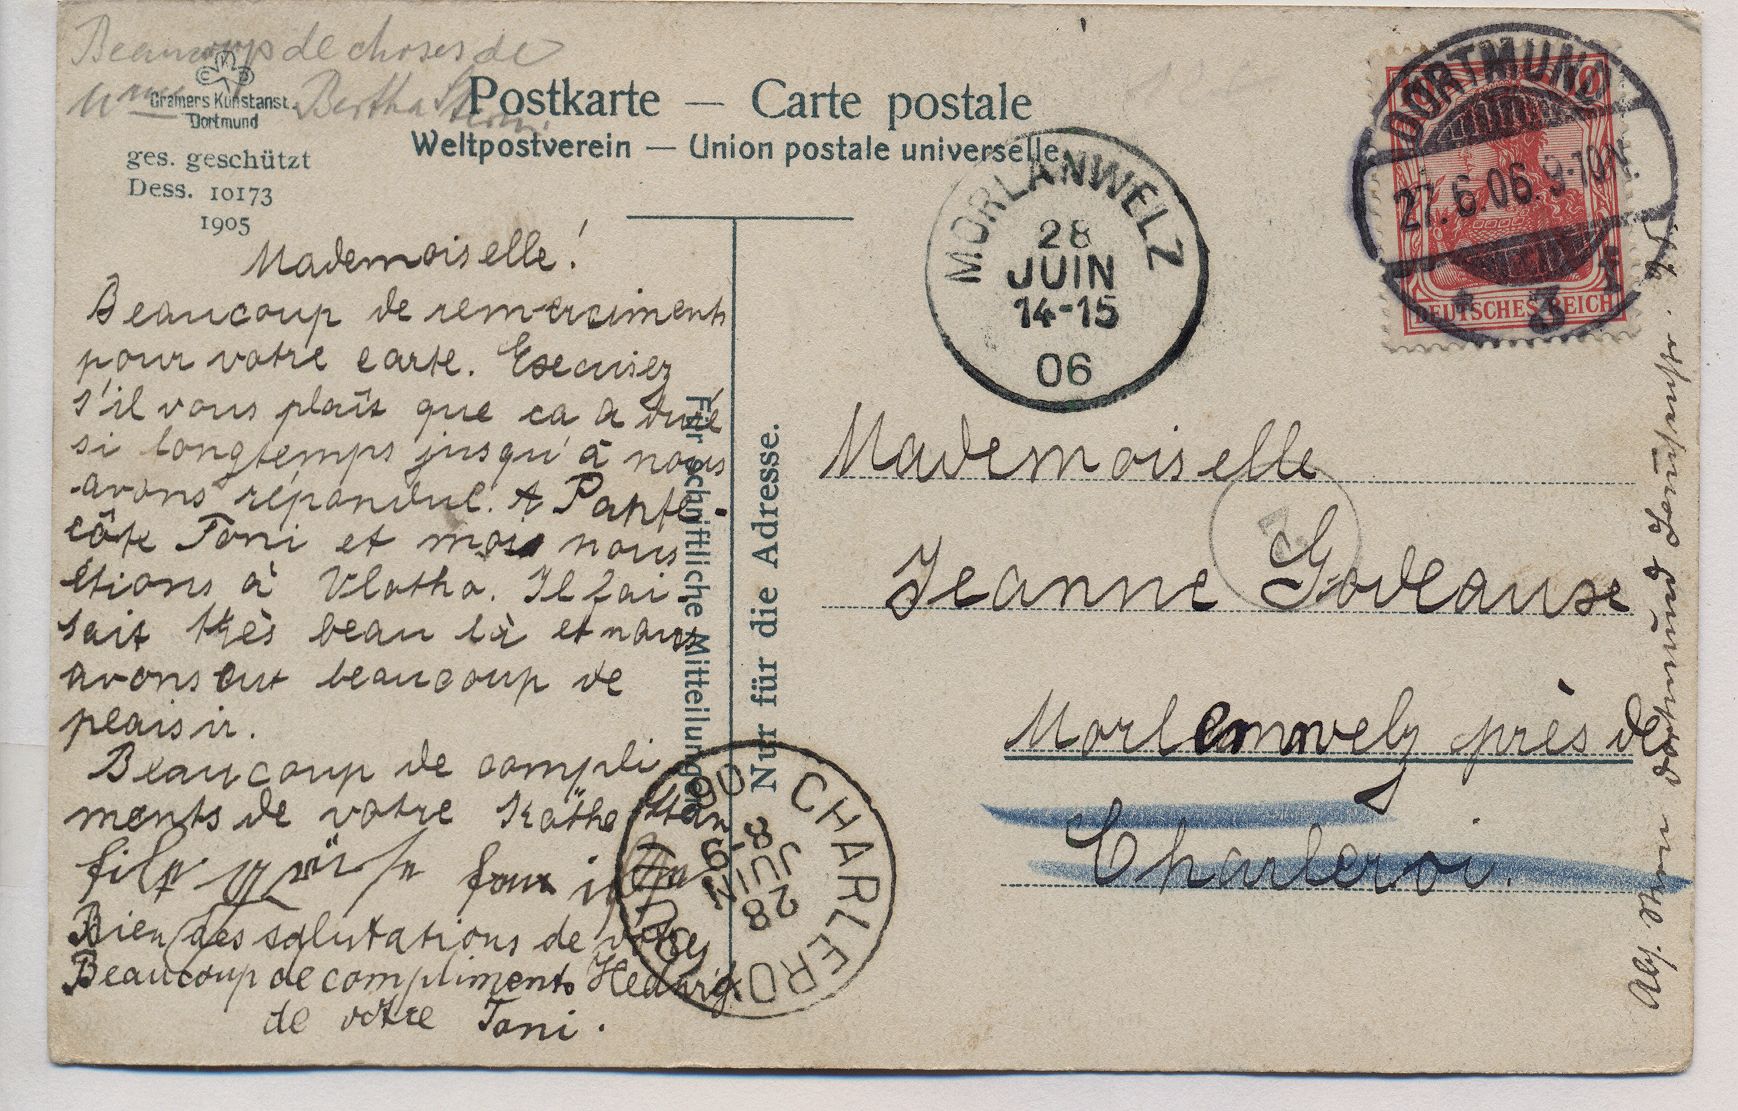 Beaucoup de choses de
Mme Bertha Stern.
CKD
Cramers Kunstanst.
Dortmund
ges. geschützt
Dess. 10173
1905
Postkarte — Carte postale
Weltpostverein — Union postale universelle
MORLANWELZ
28
JUIN
14-15
06
DORTMUND
27.6.06. 9-10N.
* 3 f
10
DEUTSCHES REICH
Mademoiselle!
Beaucoup de remerciments
pour votre carte. Excusez
s'il vous plaît que ca a duré
si longtemps jusqu'à nous
avons répondu. A Pante-
côte Toni et moi nous
étions à Vlotho. Il fai-
sait très beau là et nous
avons eut beaucoup de
plaisir.
Beaucoup de compli
ments de votre Käthe Stern
Bien des salutations de votre
Hedwig
Beaucoup de compliments
de votre Toni.
Für schriftliche Mitteilungen
Nur für die Adresse.
CHARLEROI
28
JUIN
06
Mademoiselle
Jeanne Godeaux
Morlanwelz près de
Charleroi.